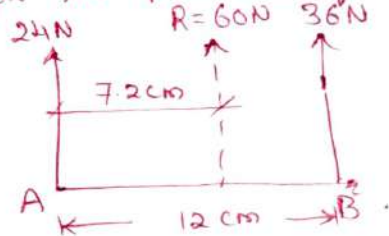 24N R=60N 36N
7.2cm
A B
12cm